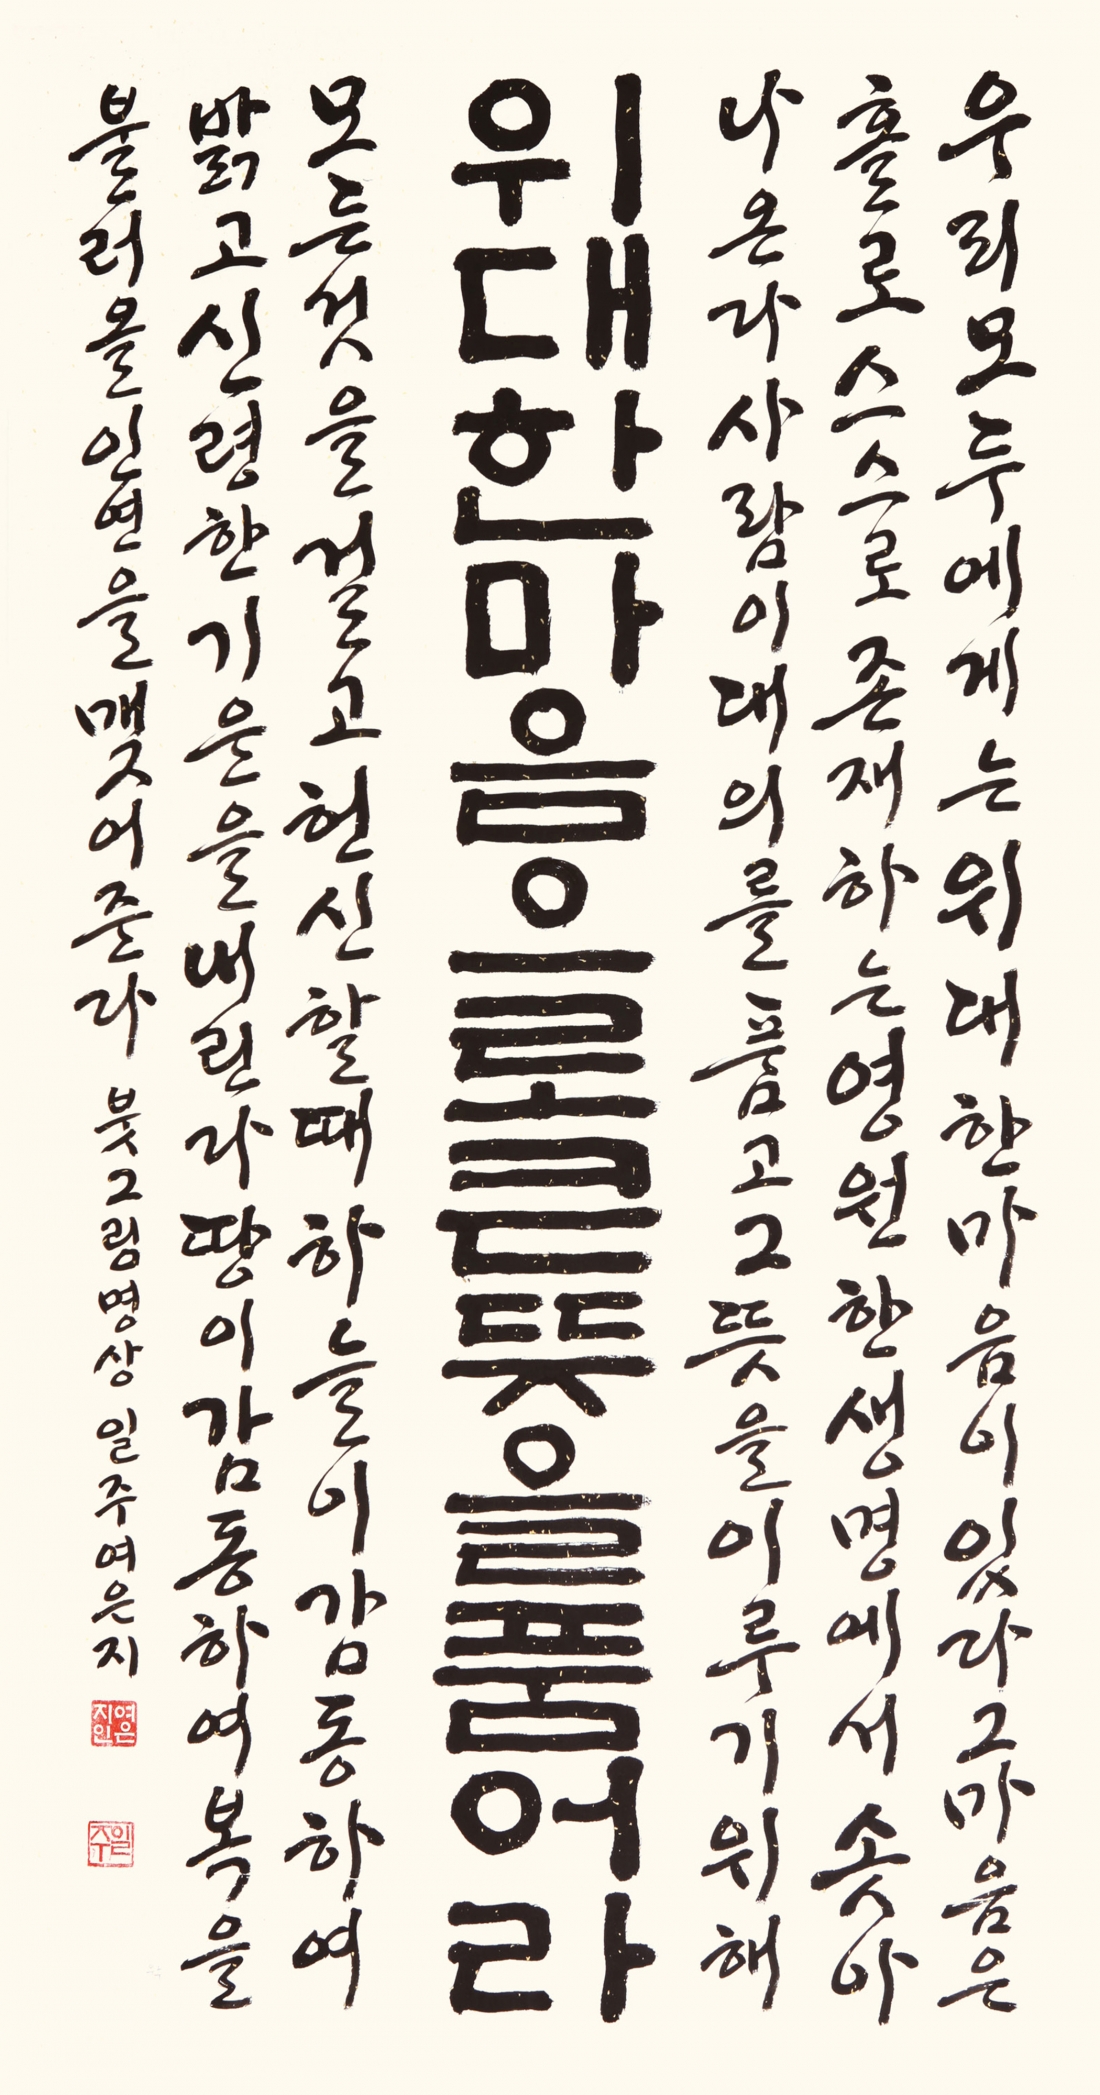 우리모두에게는위대한마음이있다그마음은
홀로스스로존재하는영원한생명에서솟아
나온다사람이대의를품고그뜻을이루기위해
위대한마음으로큰뜻을품어라
모든것을걸고헌신할때하늘이감동하여
밝고신령한기운을내린다땅이감동하여복을
불러올인연을맺어준다 붓그림명상 일주 여은지
여은지인
일주